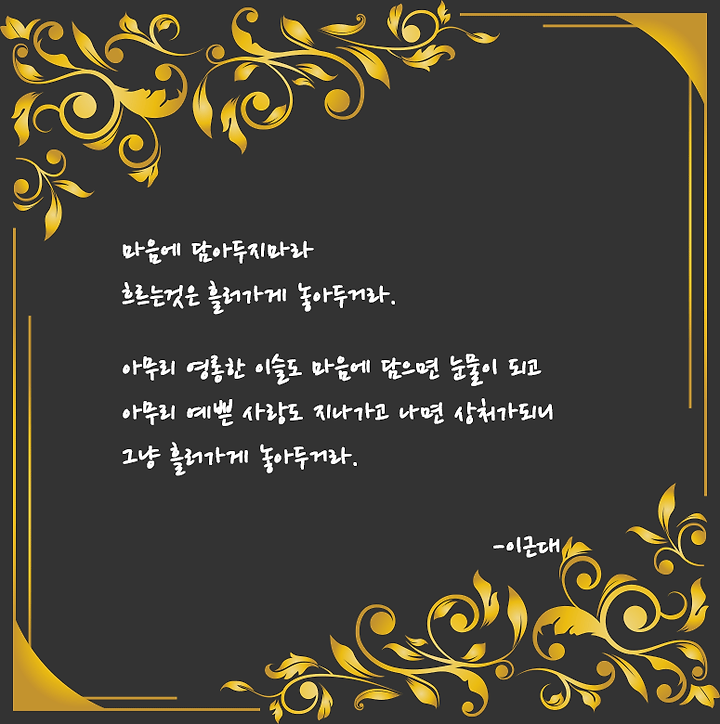 마음에 담아두지마라
흐르는것은 흘러가게 놓아두거라.
아무리 영롱한 이슬도 마음에 담으면 눈물이 되고
아무리 예쁜 사랑도 지나가고 나면 상처가되니
그냥 흘러가게 놓아두거라.
-이근대